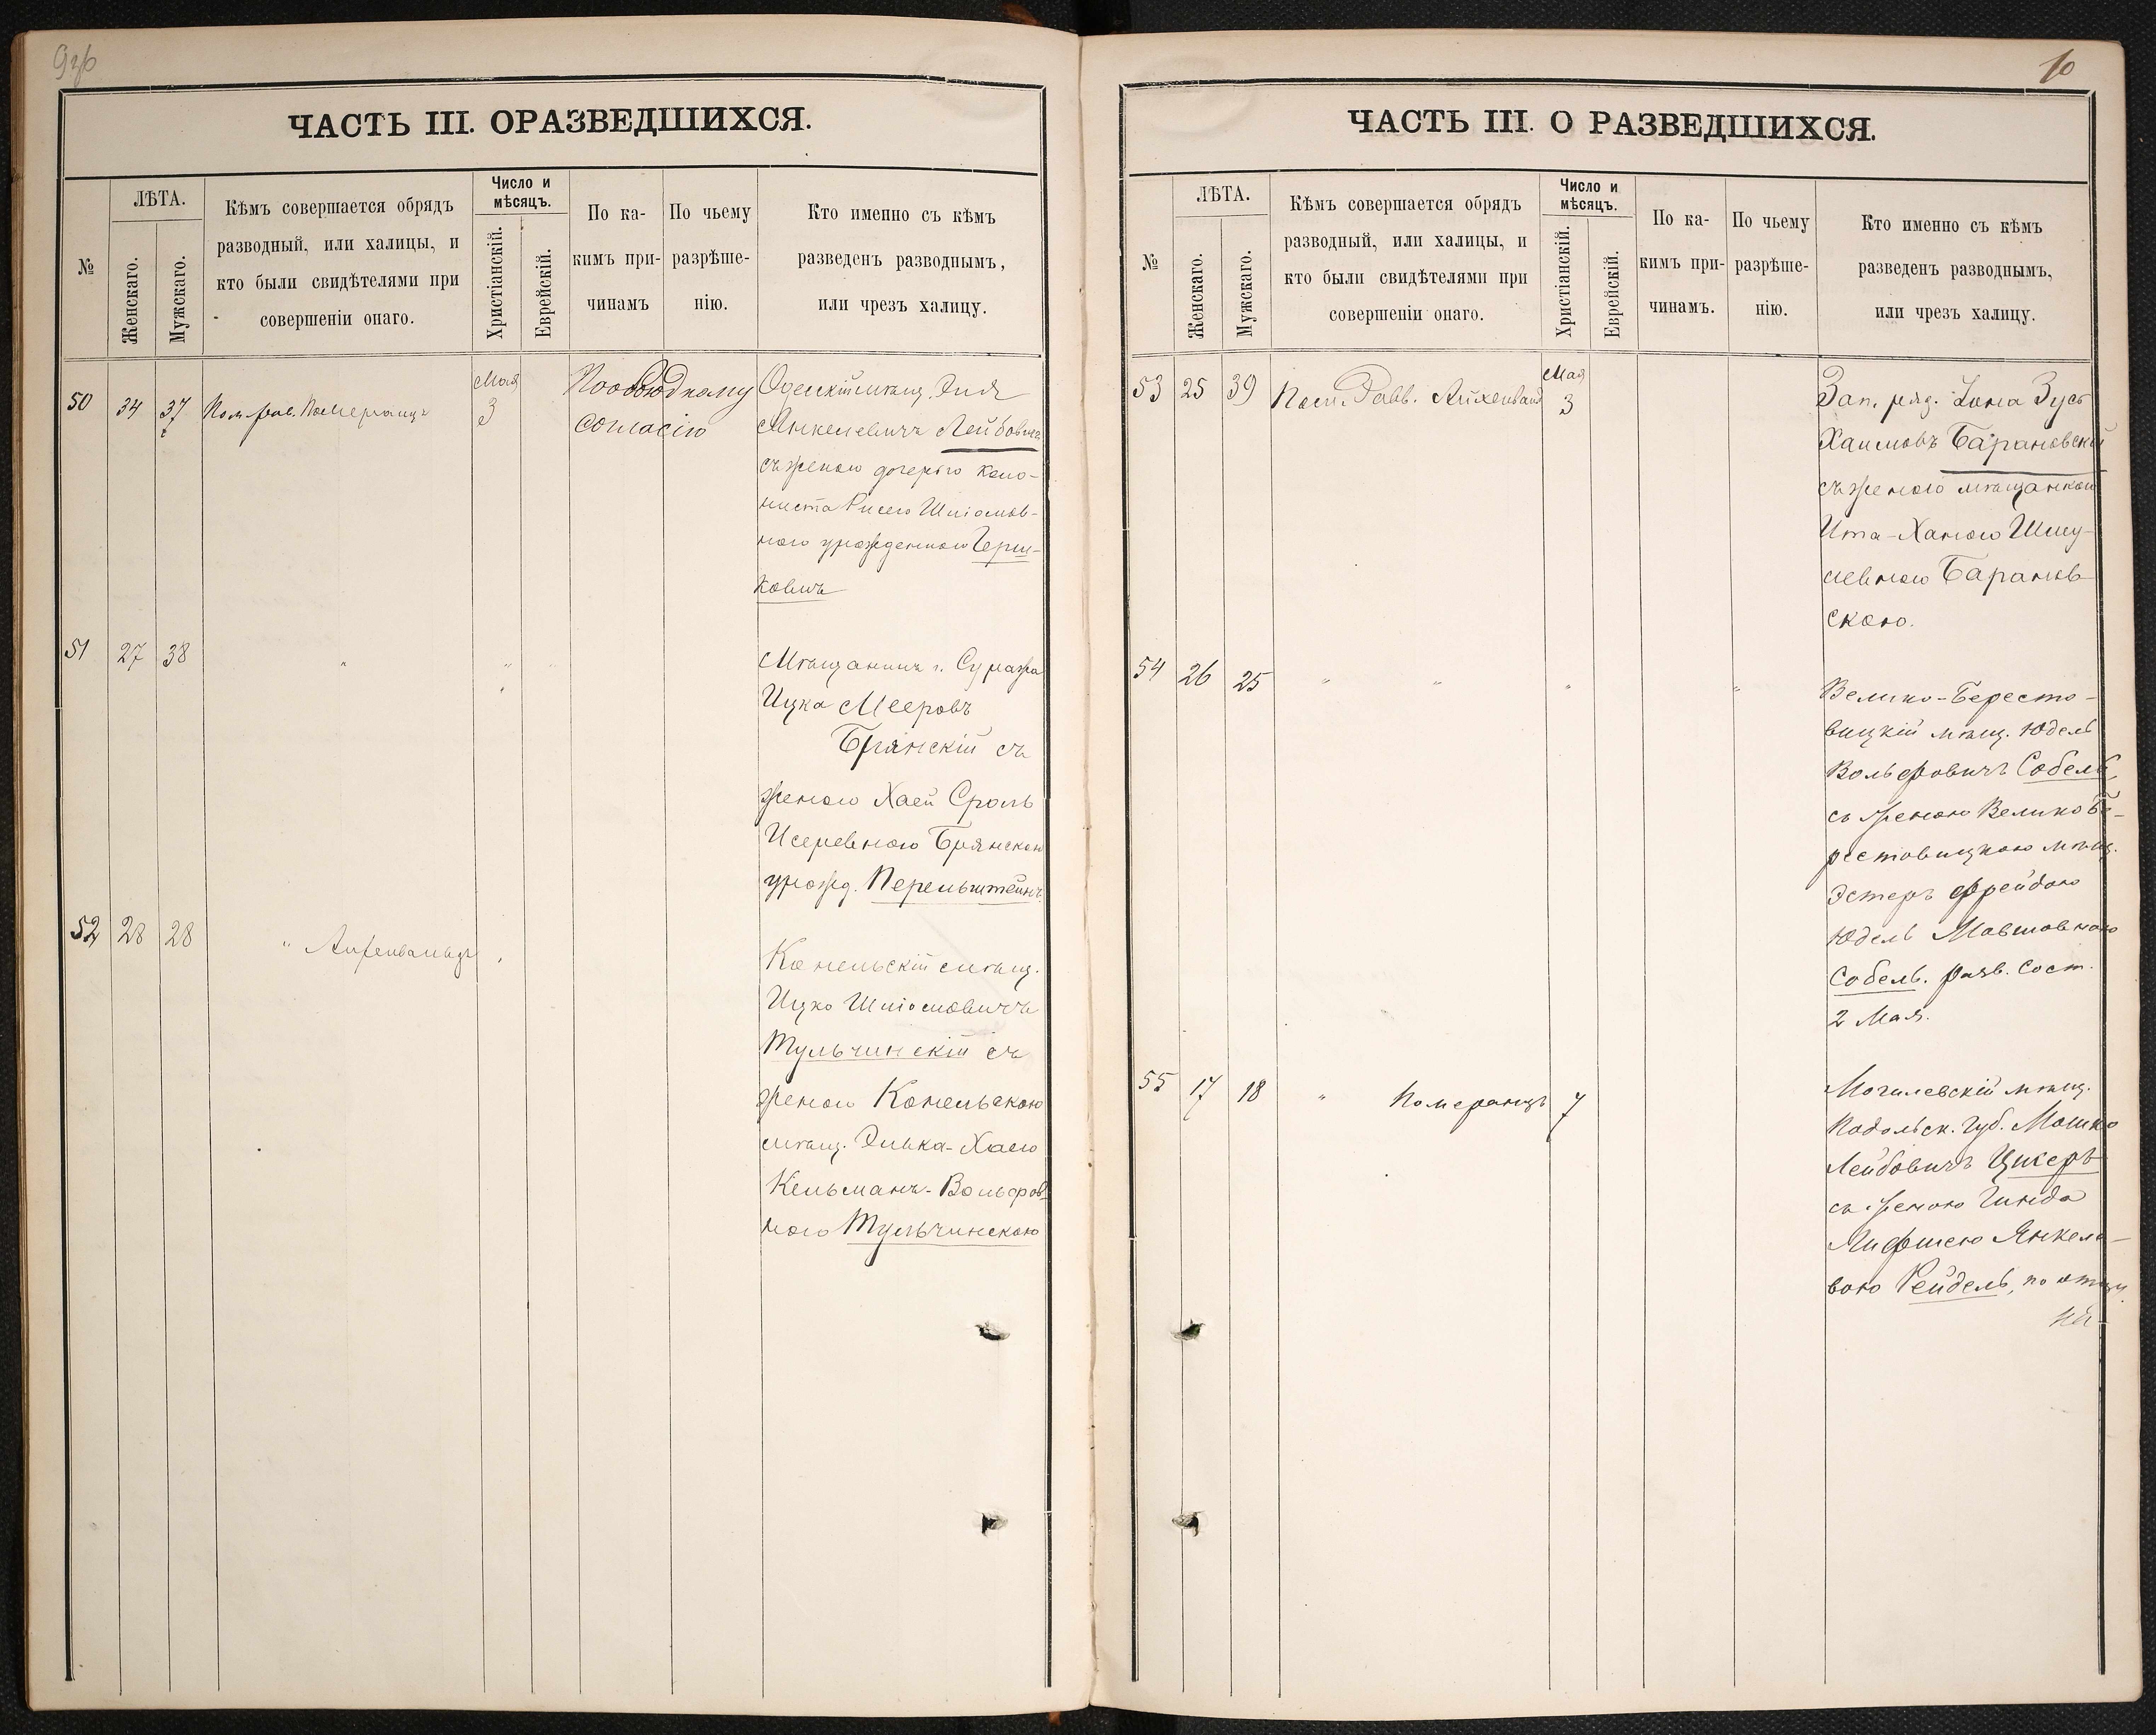 ЧАСТЬ III. ОРАЗВЕДШИХСЯ.
№
ЛѢТА.
Женскаго.
Мужскаго.
Кѣмъ совершается обрядъ
разводный, или халицы, и
кто были свидѣтелями при
совершеніи онаго.
Число и
мѣсяцъ.
Христіанскій.
Еврейскій.
По ка-
кимъ при-
чинамъ
По чьему
разрѣше-
нію.
Кто именно съ кѣмъ
разведенъ разводнымъ,
или чрезъ халицу.
50 34 37 Пом. рав. Померанцъ
Мая
3
Пообоюдному
согласію
Одескій мѣщ. Эля
Янкелевичъ Лейбовичъ
съ женою дочерью коло-
ниста Рисею Шліомов-
ною урожденною Герш-
ковичъ
51 27 38 " "
Мѣщанинъ г. Суража
Ицка Мееровъ
Брянскій съ
женою Хаей Сроль
Исеревною Брянскою
урожд. Перельштейнъ
52 28 28 " Айхенвальдъ
Конельскій мѣщ.
Ицко Шліомовичъ
Тульчинскій съ
женою Конельскою
мѣщ. Элька-Хаею
Кельманъ-Вольфов-
ною Тульчинскою
10
ЧАСТЬ III. О РАЗВЕДШИХСЯ.
№
ЛѢТА.
Женскаго.
Мужскаго.
Кѣмъ совершается обрядъ
разводный, или халицы, и
кто были свидѣтелями при
совершеніи онаго.
Число и
мѣсяцъ.
Христіанскій.
Еврейскій.
По ка-
кимъ при-
чинамъ.
По чьему
разрѣше-
нію.
Кто именно съ кѣмъ
разведенъ разводнымъ,
или чрезъ халицу.
53 25 39 Пом. Равв. Айхенвальд
Мая
3
Зап. ряд. Іона Зусь
Хаимовъ Барановскій
съ женою мѣщанкою
Ита-Ханою Шму-
левною Баранов-
скою.
54 26 25 " " " "
Велико-Бересто-
вицкій мѣщ. Юдель
Вольфовичъ Собель,
съ женою Велико Бе-
рестовицкою мѣщ.
Эстеръ Фрейдою
Юдель Мовшовною
Собель. разв. сост.
2 Мая.
55 17 18 " Померанцъ 7
Могилевскій мѣщ.
Подольск. губ. Мошко
Лейбовичъ Цикеръ
съ женою Гинда
Лифшею Янкеле-
вою Рейдель, по отцу